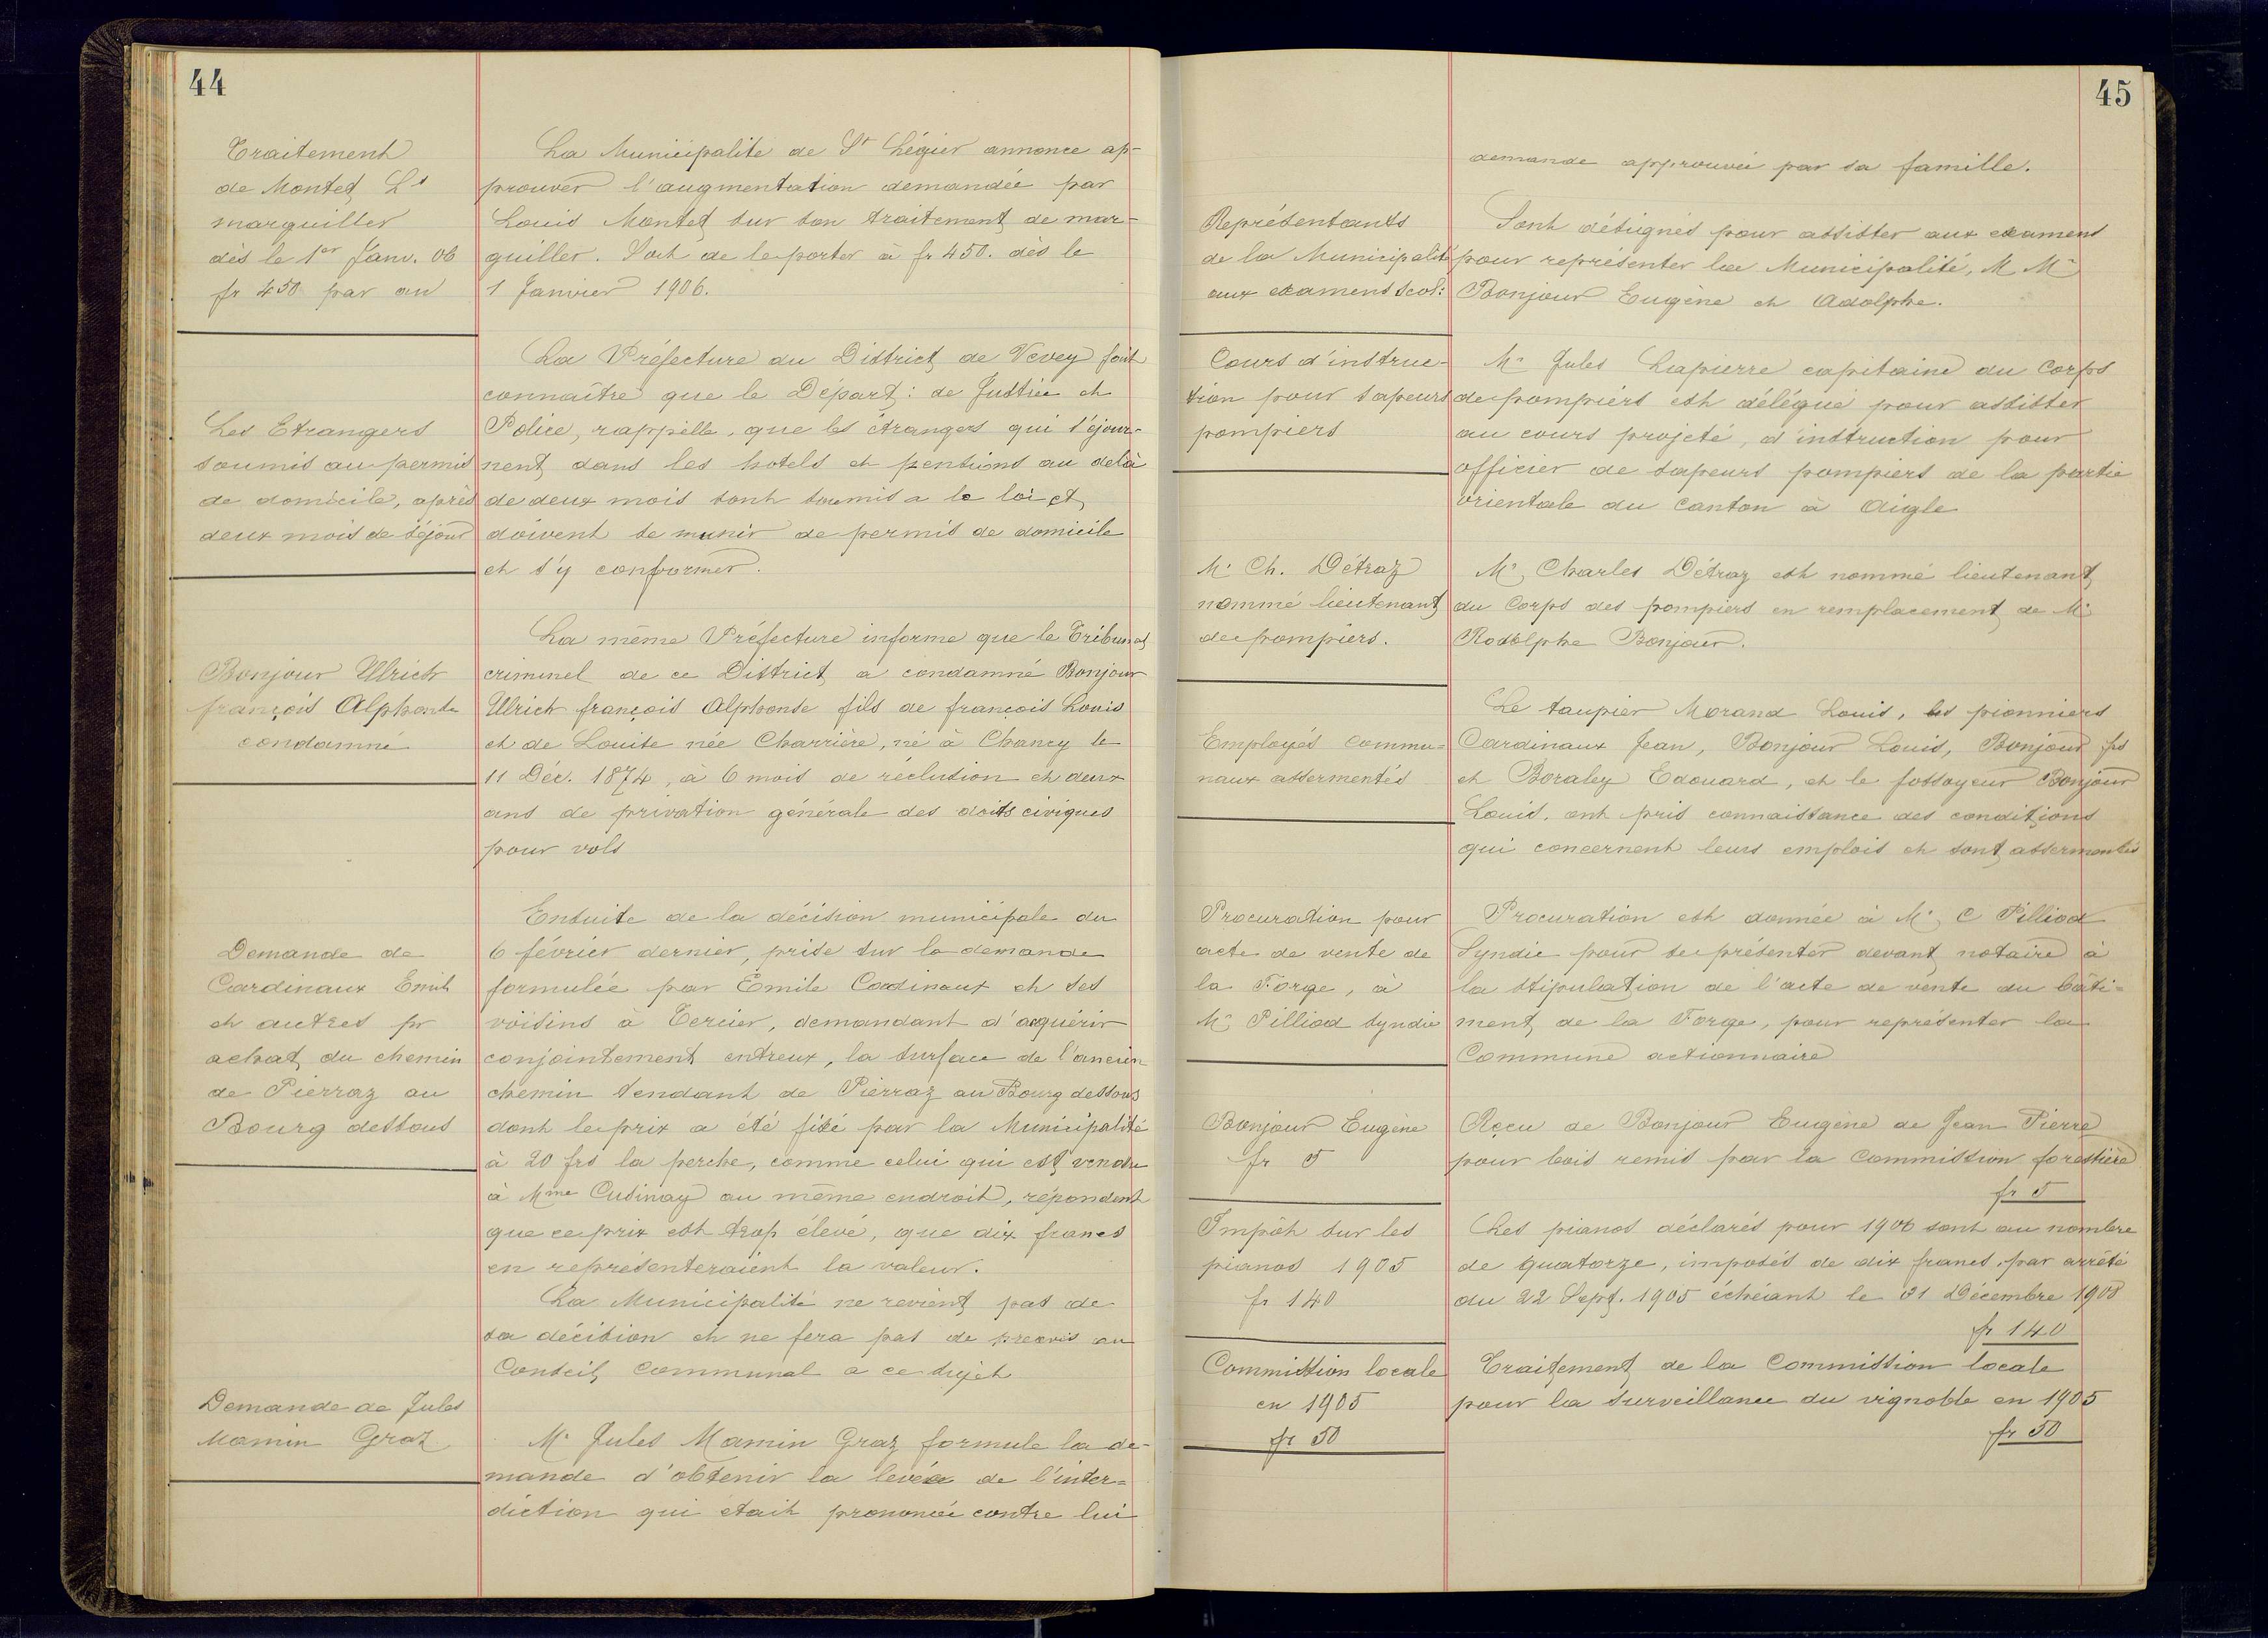 44
Traitement
de Montet Ls
marguiller
dès le 1er Janv. 06
fr 450 par an
La Municipalité de St Légier annonce ap-
prouver l'augmentation demandée par
Louis Montet sur son traitement de mar-
guiller. Soit de le porter à fr 450. dès le
1 Janvier 1906.
Les Etrangers
soumis au permis
de domicile, après
deux mois de séjour
La Préfecture du District de Vevey fait
connaître que le Départ: de Justice et
Police, rappelle, que les étrangers qui séjour-
nent dans les hotels et pensions au delà
de deux mois sont soumis a la loi et
doivent se munir de permis de domicile
et s'y conformer.
Bonjour Ulrich
françois Alphonse
condamné
La même Préfecture informe que le Tribunal
criminel de ce District a condamné Bonjour
Ulrich françois Alphonse fils de françois Louis
et de Louise née Charrière, né à Chancy le
11 Déc. 1874, à 6 mois de réclusion et deux
ans de privation générale des doits civiques
pour vols
Demande de
Cardinaux Emile
et autres pr
achat du chemin
de Pierraz au
Bourg dessous
Ensuite de la décision municipale du
6 février dernier, prise sur la demande
formulée par Emile Cardinaux et ses
voisins à Tercier, demandant d'acquérir
conjointement entreux, la surface de l'ancien
chemin tendant de Pierraz au Bourg dessous
dont le prix a été fixé par la Municipalité
à 20 frs la perche, comme celui qui est vendu
à Mme Cusinay au même endroit, répondent
que ce prix est trop élevé, que dix francs
en représenteraient la valeur.
La Municipalité ne revient pas de
sa décision et ne fera pas de preavis au
Conseil communal a ce sujet
Demande de Jules
Mamin Graz
Mr Jules Mamin Graz formule la de-
mande d'obtenir la levée de l'inter=
diction qui était prononcée contre lui
45
demande approuvée par sa famille.
Représentants
de la Municipalité
aux examens scol:
Sont désignés pour assister aux examens
pour représenter la Municipalité, M Mrs
Bonjour Eugène et Adolphe.
Cours d'instruc-
tion pour sapeurs
pompiers
Mr Jules Lapierre capitaine du Corps
de pompiers est délégué pour assister
au cours projeté, d'instruction pour
officier de sapeurs pompiers de la partie
orientale du Canton à Aigle
Mr Ch. Détraz
nommé lieutenant
de pompiers.
Mr Charles Détraz est nommé lieutenant
du Corps des pompiers en remplacement de Mr
Rodolphe Bonjour.
Employés commu=
naux assermentés
Le taupier Morand Louis, les pionniers
Cardinaux Jean, Bonjour Louis, Bonjour fs
et Boraley Edouard, et le fossoyeur Bonjour
Louis, ont pris connaissance des conditions
qui concernent leurs emplois et sont assermentés
Procuration pour
acte de vente de
la Forge, à
Mr Pilliod syndic
Procuration est donnée à Mr C Pilliod
Syndic pour se présenter devant notaire à
la stipulation de l'acte de vente du bâti=
ment de la Forge, pour représenter la
Commune actionnaire
Bonjour Eugène
fr 5
Reçu de Bonjour Eugène de Jean Pierre
pour bois remis par la Commission forestière
fr 5
Impôt sur les
pianos 1905
fr 140
Les pianos déclarés pour 1906 sont au nombre
de quatorze, imposés de dix francs, par arrêté
du 22 Sept. 1905 échéant le 31 Décembre 1908
fr 140
Commission locale
en 1905
fr 50
Traitement de la Commission locale
pour la surveillance du vignoble en 1905
fr 50